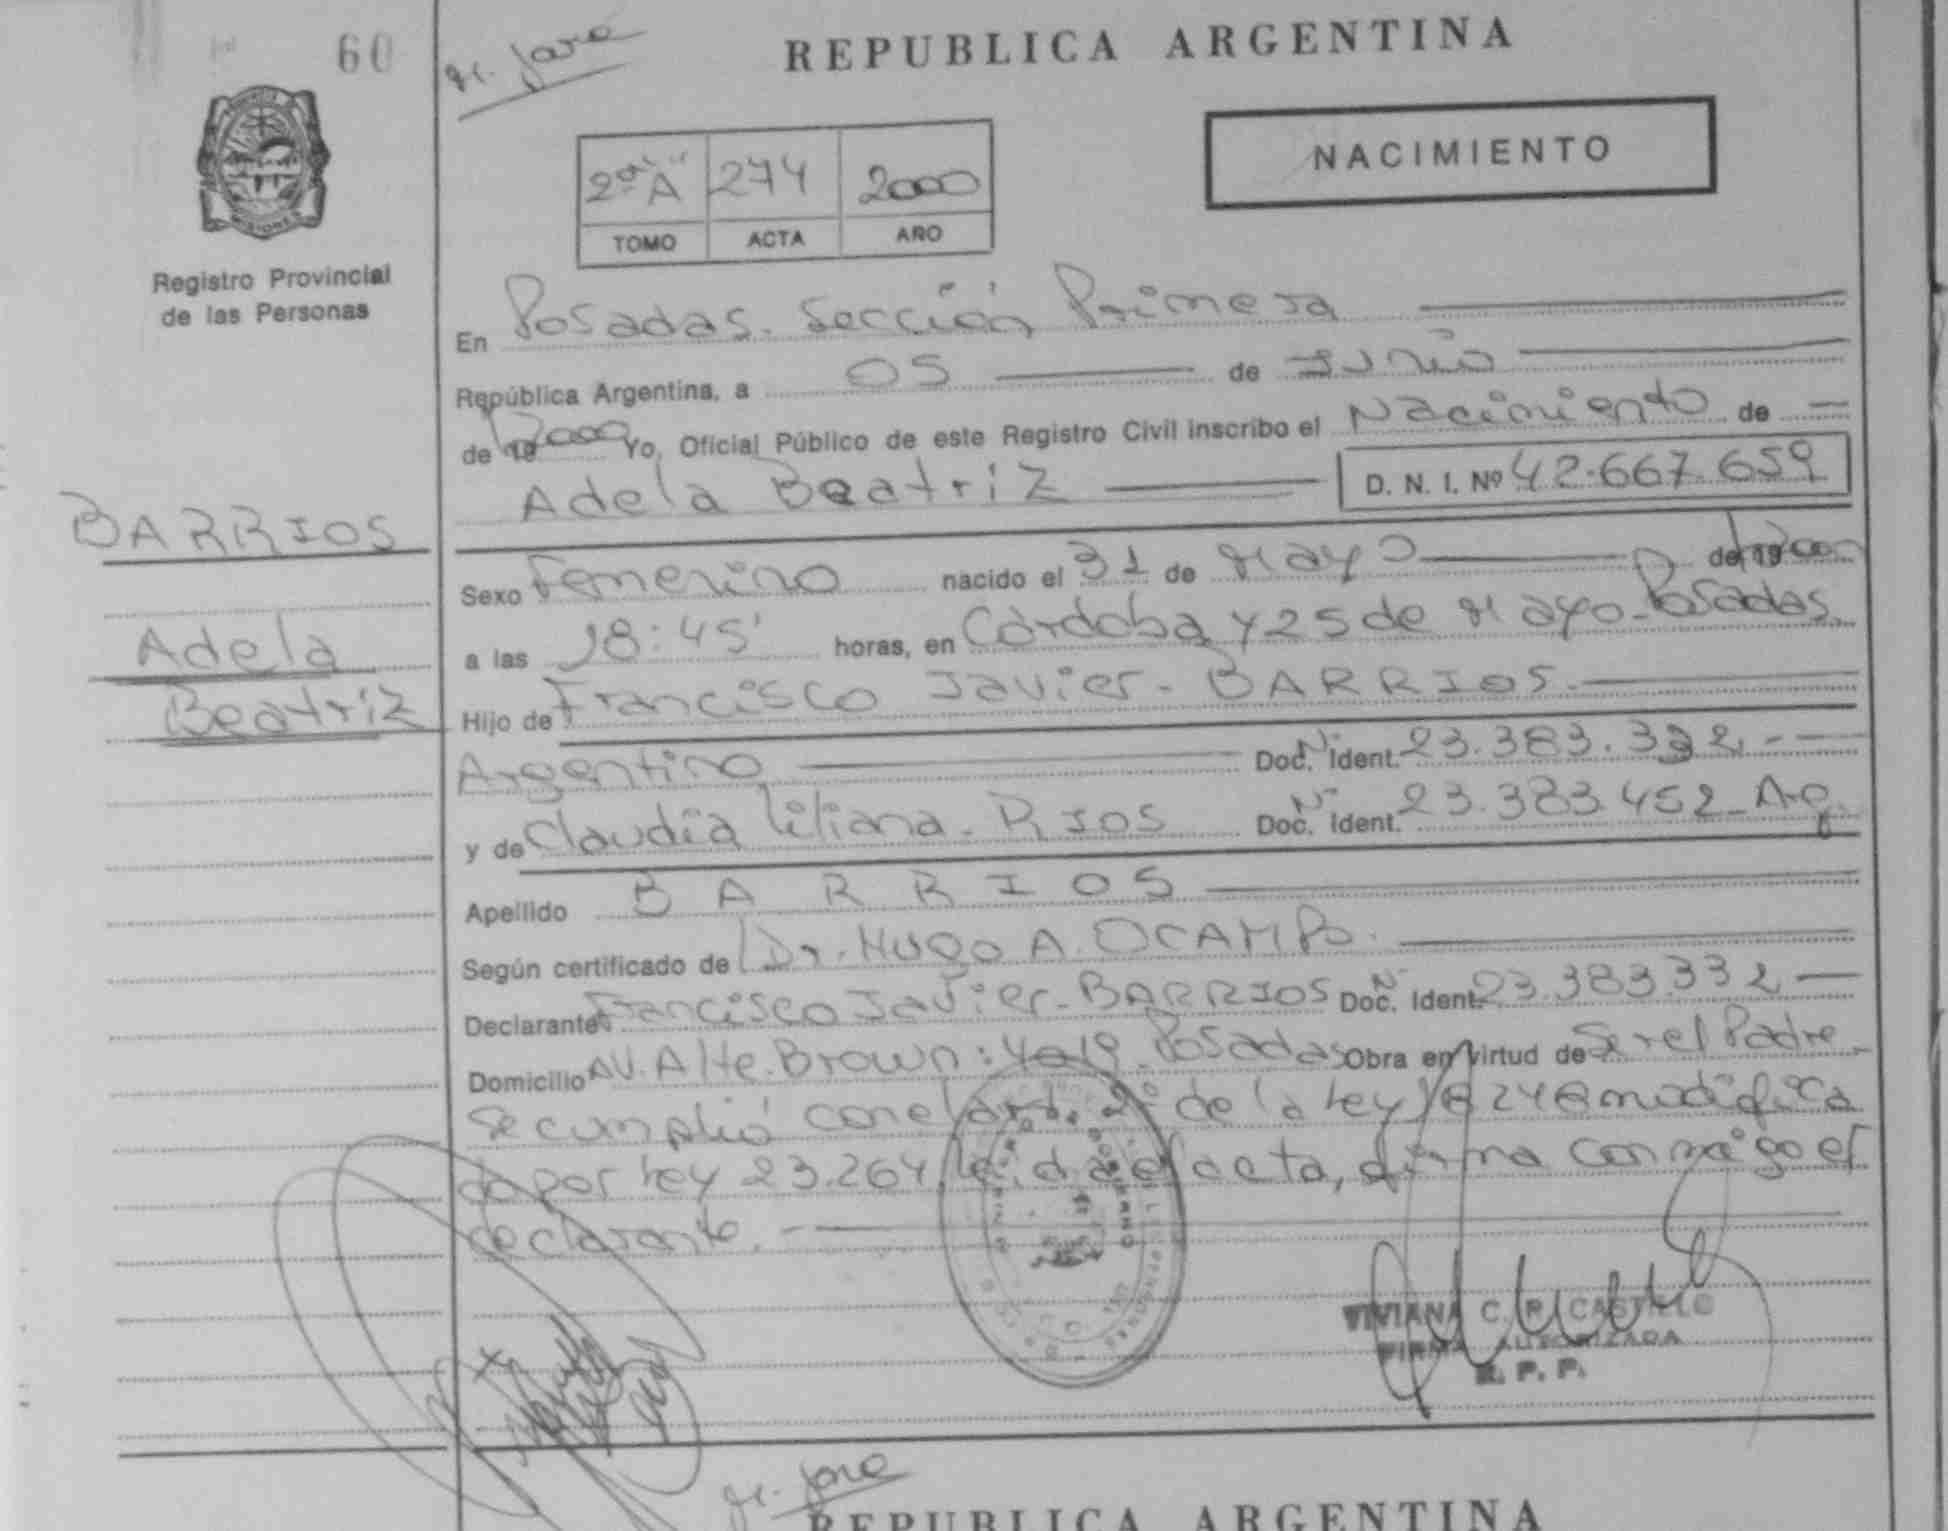 60
M. José
REPUBLICA ARGENTINA
NACIMIENTO
2do "A" 274 2000
TOMO ACTA AÑO
MISIONES
Registro Provincial
de las Personas
En Posadas. Sección Primera
República Argentina, a 05 de Junio
de 19 2000 Yo, Oficial Público de este Registro Civil inscribo el Nacimiento de
Adela Beatriz D. N. I. Nº 42.667.659
BARRIOS
Adela
Beatriz
Sexo Femenino nacido el 31 de Mayo de 19 2000
a las 18:45' horas, en Córdoba y 25 de Mayo - Posadas.
Hijo de Francisco Javier - BARRIOS.
Argentino Doc. Nº Ident. 23.383.332.
y de Claudia Liliana - RIOS Doc. Nº Ident. 23.383.452 - Arg.
Apellido BARRIOS
Según certificado de Dr. HUGO A. OCAMPO.
Declarante Francisco Javier - BARRIOS Doc. Nº Ident. 23.383.332
Domicilio AV. Alte. Brown: 4019 Posadas Obra en virtud de Ser el Padre
Se cumplió con el art. 2º de la Ley 18248 modifica
do por Ley 23.264, leída el acta, firma conmigo el
declarante.
VIVIANA C. R. CASTILLO
FIRMA AUTORIZADA
R. P. P.
M. José
REPUBLICA ARGENTINA